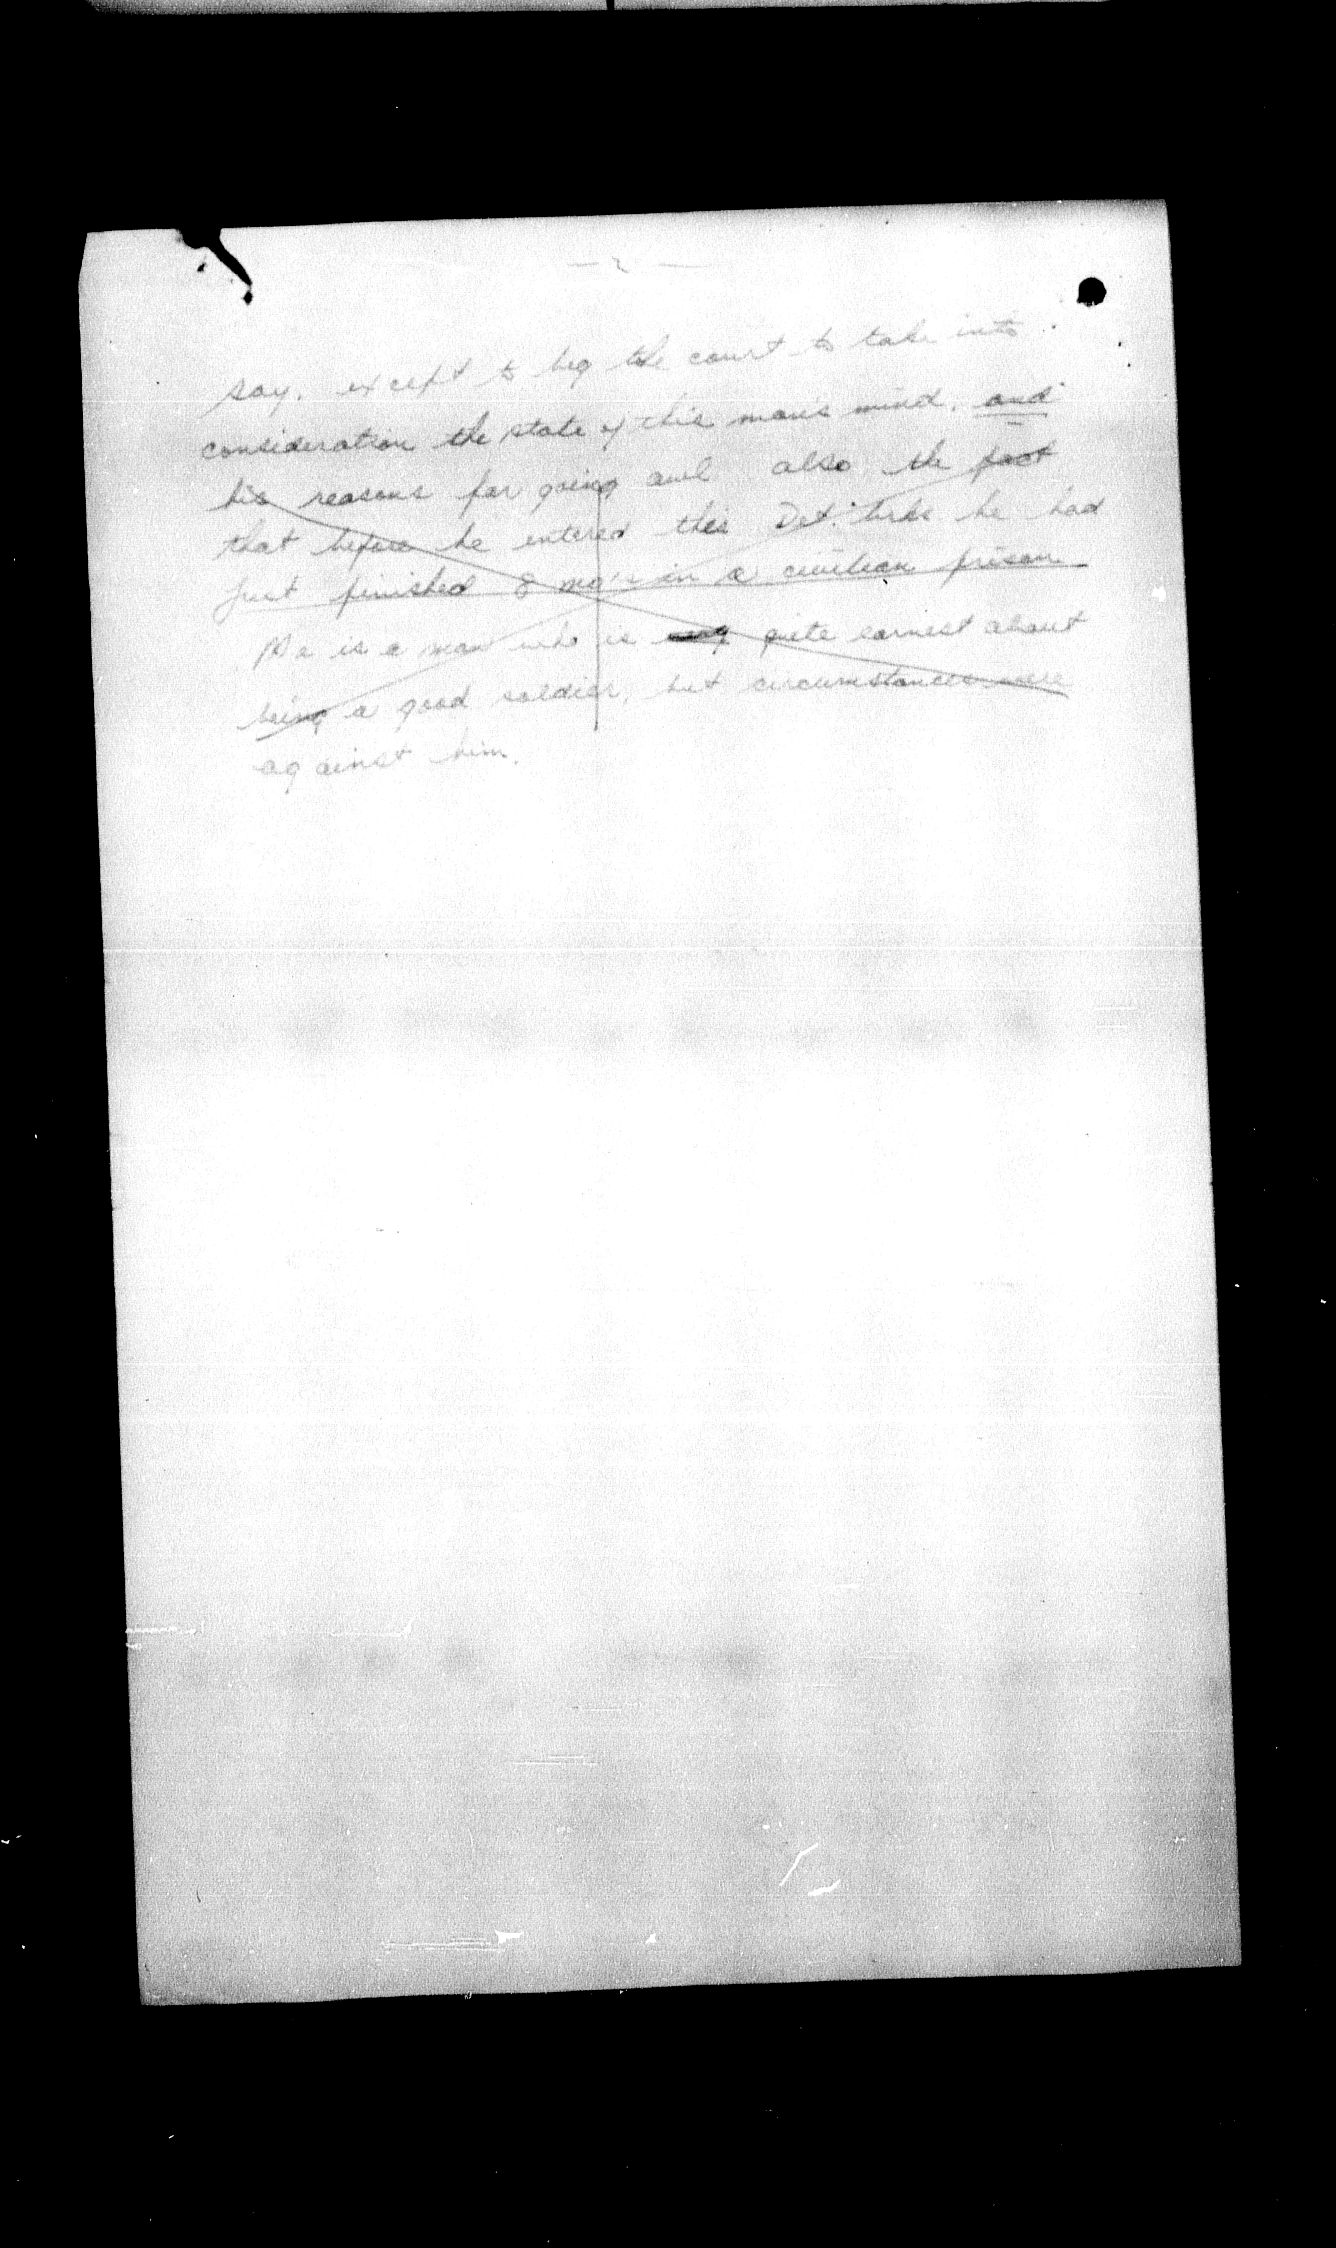 — 2 —
say. except to beg the court to take into
consideration the state of this man's mind. and
his reasons for going awl also the fact
that before he entered this Det. he had
just finished 8 mo's in a civilian prison
He is a man who is quite earnest about
being a good soldier, but circumstances were
against him.